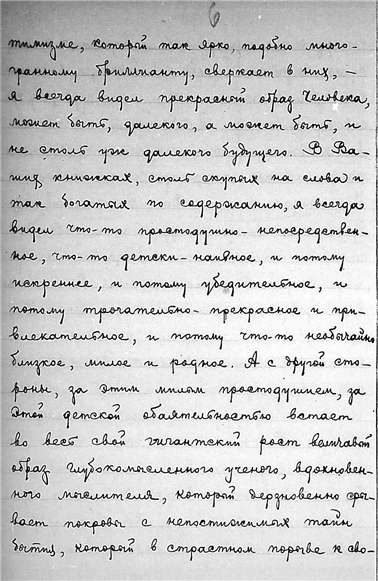 6
тимизме, который так ярко, подобно много-
гранному бриллианту, сверкает в них, –
я всегда видел прекрасный образ Человека,
может быть, далекого, а может быть, и
не столь уж далекого будущего. В Ва-
ших книжках, столь скупых на слова и
так богатых по содержанию, я всегда
видел что-то простодушно-непосредствен-
ное, что-то детски-наивное, и потому
искреннее, и потому убедительное, и
потому трогательно-прекрасное и при-
влекательное, и потому что-то необычайно
близкое, милое и родное. А с другой сто-
роны, за этим милым простодушием, за
этой детской обаятельностью встает
во весь свой гигантский рост величавый
образ глубокомысленного ученого, вдохновен-
ного мыслителя, который дерзновенно сры-
вает покровы с непостижимых тайн
бытия, который в страстном порыве к сво-